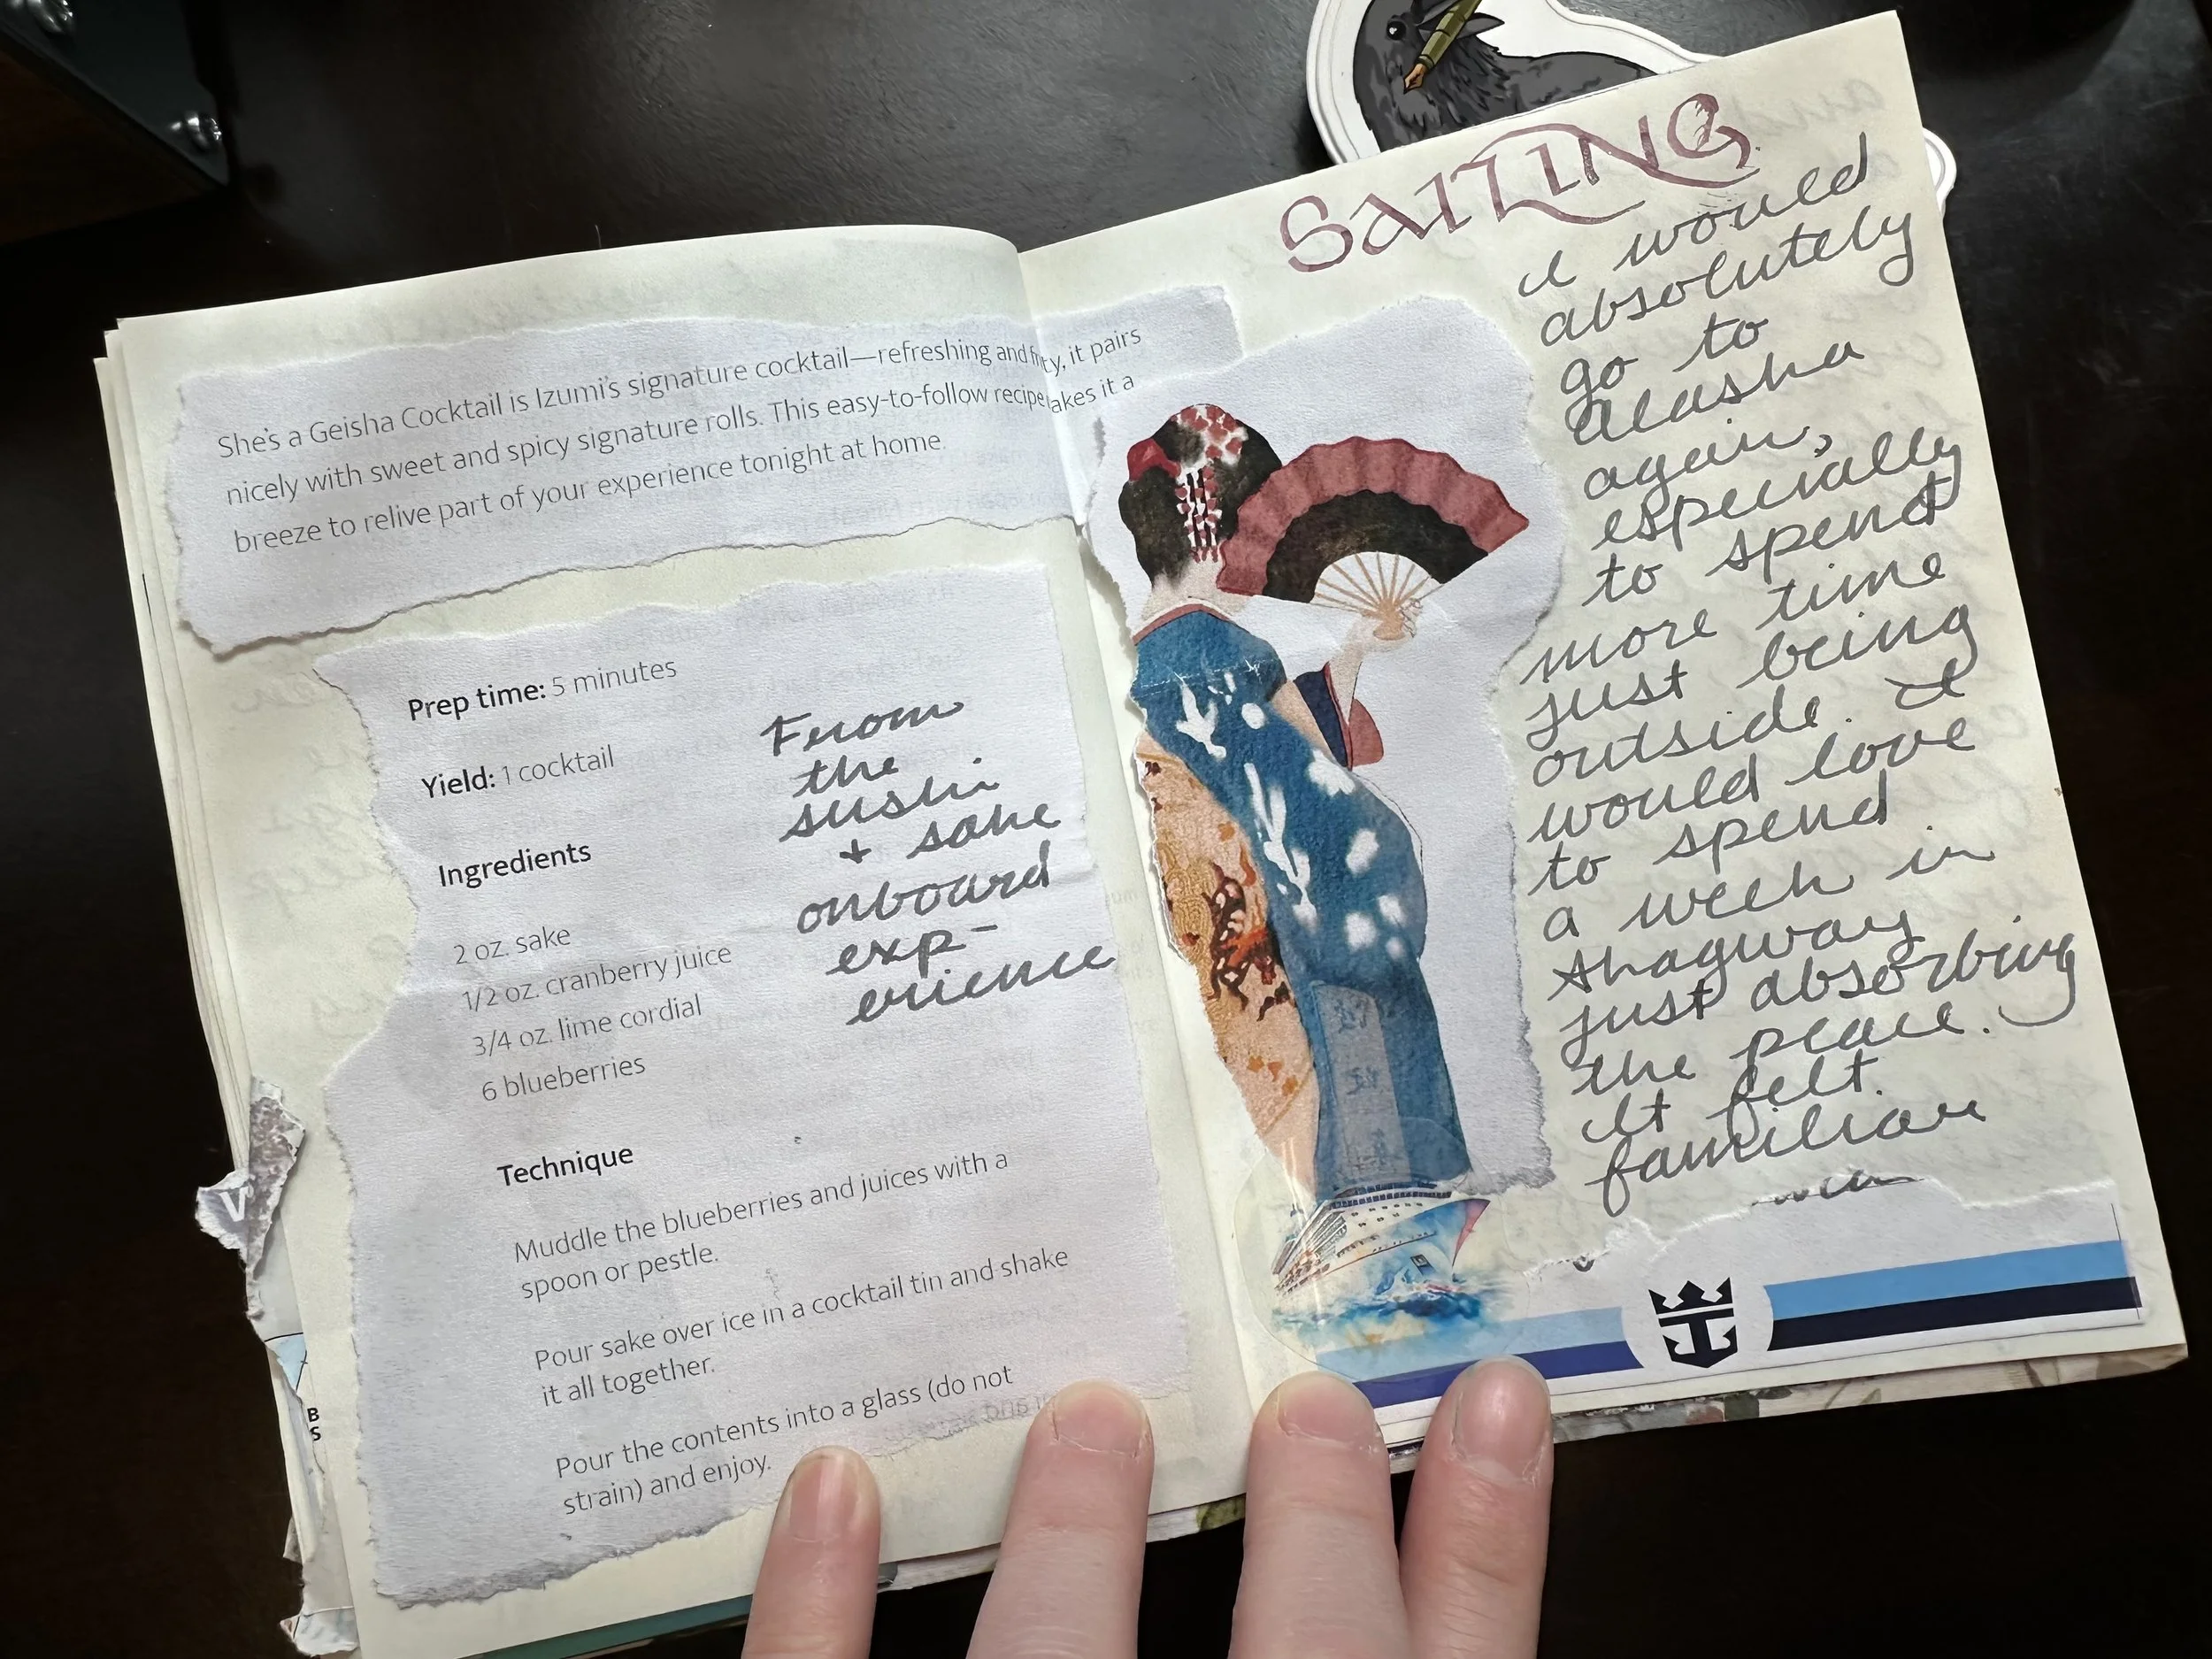 She's a Geisha Cocktail is Izumi's signature cocktail—refreshing and fruity, it pairs
nicely with sweet and spicy signature rolls. This easy-to-follow recipe makes it a
breeze to relive part of your experience tonight at home.
Prep time: 5 minutes
Yield: 1 cocktail
Ingredients
2 oz. sake
1/2 oz. cranberry juice
3/4 oz. lime cordial
6 blueberries
Technique
Muddle the blueberries and juices with a
spoon or pestle.
Pour sake over ice in a cocktail tin and shake
it all together.
Pour the contents into a glass (do not
strain) and enjoy.
From
the
sushi
+ sake
onboard
exp-
erience
V
B
S
SAILING
I would
absolutely
go to
Alaska
again,
especially
to spend
more time
just being
outside. I
would love
to spend
a week in
Skagway
just absorbing
the peace.
It felt
familiar